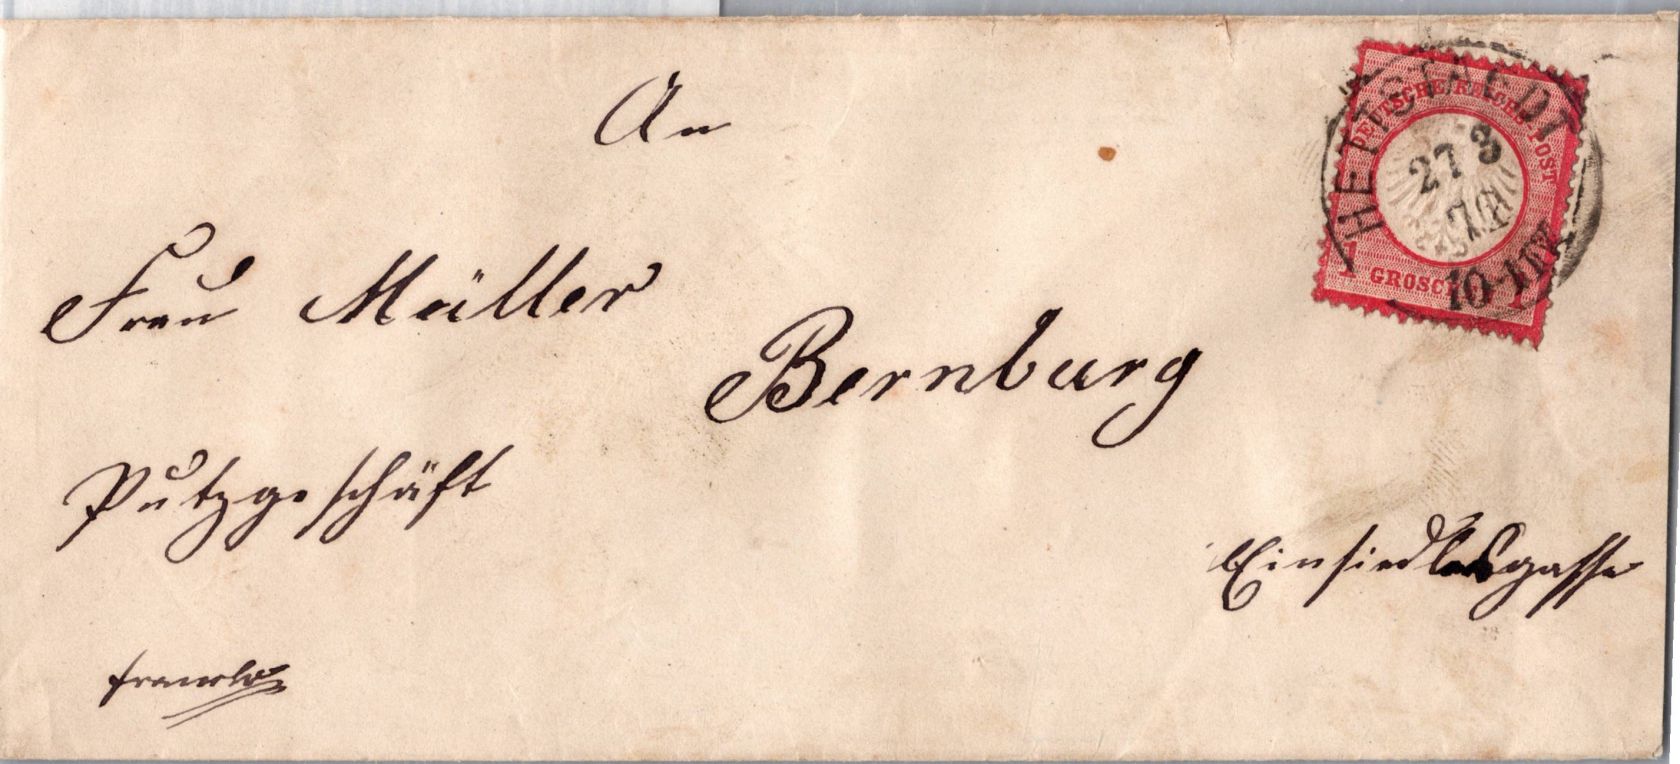 An
Frau Müller
Bernburg
Putzgeschäft
Einsiedlersgasse
franco
DEUTSCHE REICHS-POST
1 GROSCHEN 1
HETTSTAEDT
27 3
10-11 V.